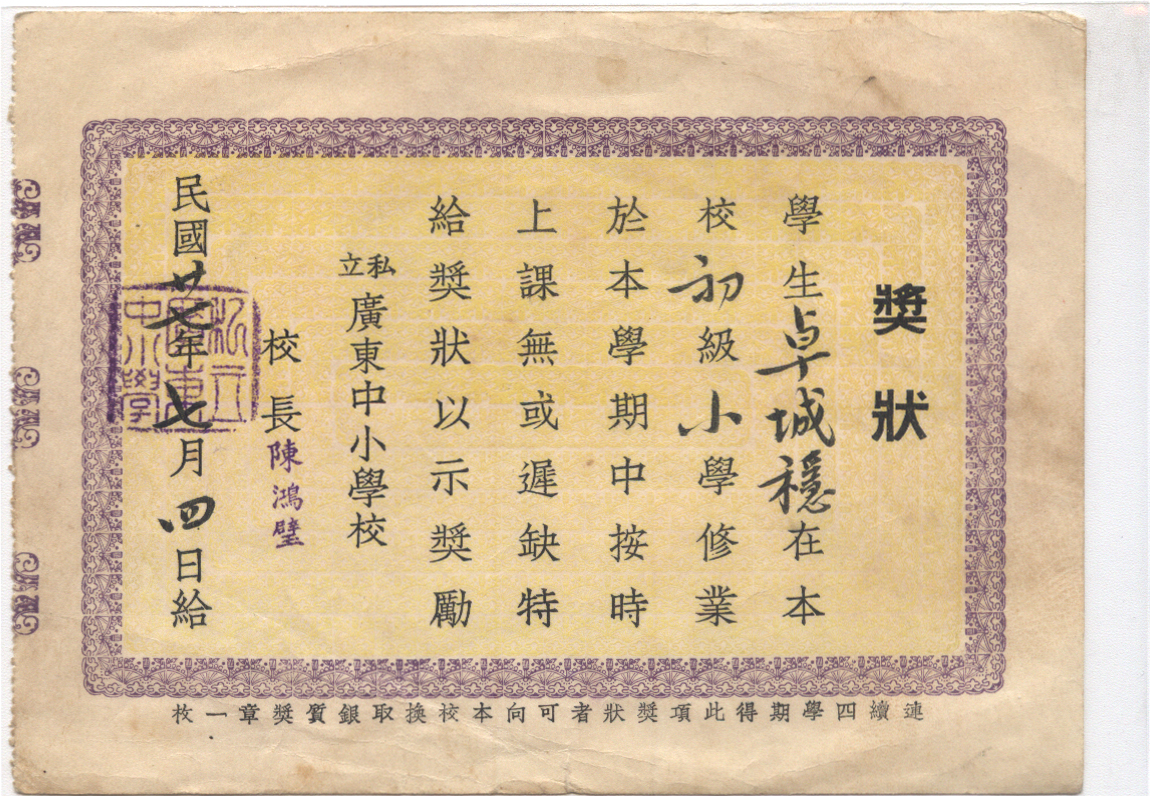 獎狀
學生卓城穩在本
校初級小學修業
於本學期中按時
上課無或遲缺特
給獎狀以示獎勵
私立廣東中小學校
校長陳鴻璧
民國廿七年七月四日給
私立廣東中小學
連續四學期得此項獎狀者可向本校換取銀質獎章一枚